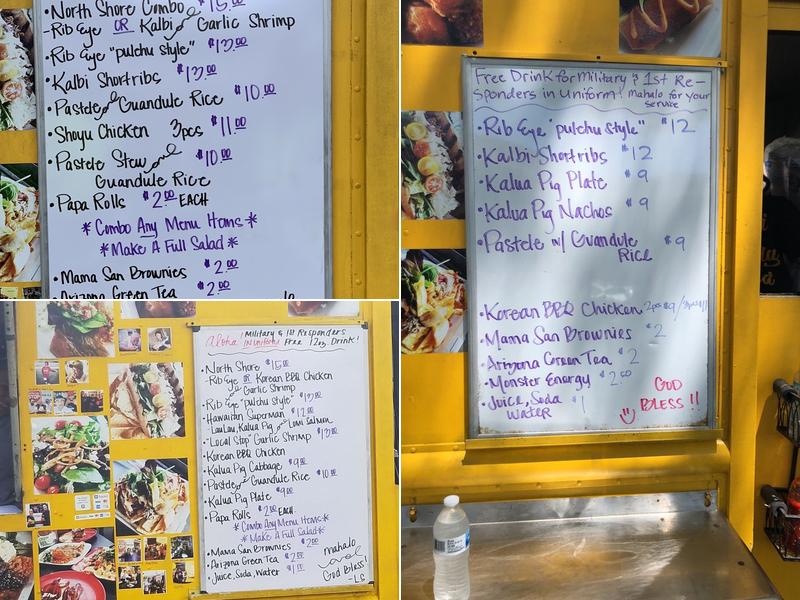 •North Shore Combo $15.00
-Rib Eye OR Kalbi and Garlic Shrimp
•Rib Eye "pulchu style" $13.00
•Kalbi Shortribs $13.00
•Pastele and Guandule Rice $10.00
•Shoyu Chicken 3pcs $11.00
•Pastele Stew and $10.00
Guandule Rice
•Papa Rolls $2.00 EACH
*Combo Any Menu Items*
*Make A Full Salad*
•Mama San Brownies $2.00
•Arizona Green Tea $2.00
Free Drink for Military & 1st Re-
sponders in Uniform! Mahalo for your
service
•Rib Eye "pulchu style" $12
•Kalbi Shortribs $12
•Kalua Pig Plate $9
•Kalua Pig Nachos $9
•Pastele w/ Guandule $9
Rice
•Korean BBQ Chicken 2pcs $9/3pcs $11
•Mama San Brownies $2
•Arizona Green Tea $2
•Monster Energy $2.50
•Juice, Soda $1
Water
GOD
BLESS!!
Aloha! Military & 1st Responders
IN Uniform Free 12oz. Drink!
•North Shore $15.00
-Rib Eye OR Korean BBQ Chicken
and Garlic Shrimp
•Rib Eye "pulchu style" $13.00
•Hawaiian Superman $12.00
-Laulau, Kalua Pig and Lomi Salmon
•"Local Stop" Garlic Shrimp $13.00
•Korean BBQ Chicken
•Kalua Pig Cabbage $9.00
•Pastele and Guandule Rice $10.00
•Kalua Pig Plate $9.00
•Papa Rolls $2.00 EACH.
*Combo Any Menu Items*
*Make A Full Salad*
•Mama San Brownies $2.00
•Arizona Green Tea $2.00
•Juice, Soda, Water $1.00
mahalo
and
God Bless!
-LG